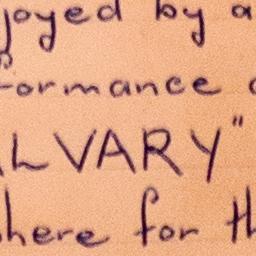 joyed by a
formance
LVARY"
here for th